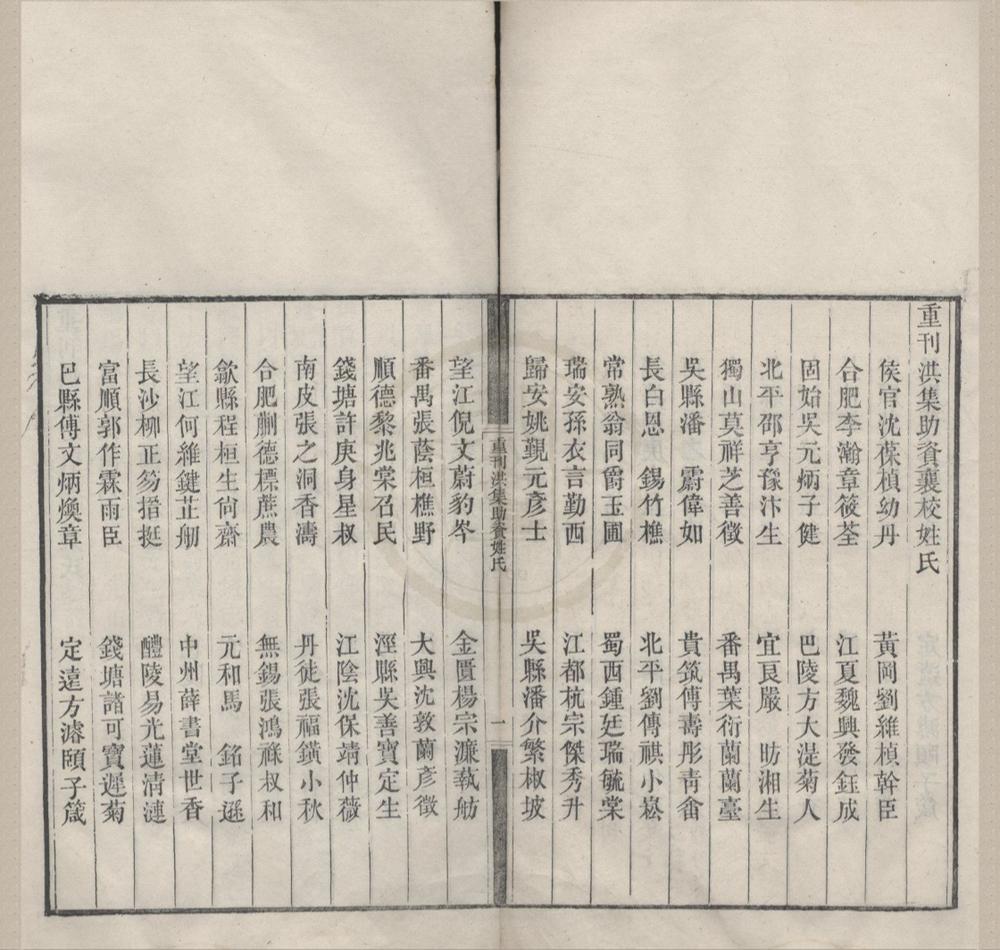 重刊洪集助貲襄校姓氏
侯官沈葆楨幼丹 黃岡劉維楨幹臣
合肥李瀚章筱荃 江夏魏興發鈺成
固始吳元炳子健 巴陵方大湜菊人
北平邵亨豫汴生 宜良嚴 昉湘生
獨山莫祥芝善徵 番禺葉衍蘭蘭臺
吳縣潘 霨偉如 貴筑傅壽彤靑畬
長白恩 錫竹樵 北平劉傳祺小崧
常熟翁同爵玉圃 蜀西鍾廷瑞毓棠
瑞安孫衣言勤西 江都杭宗傑秀升
歸安姚覲元彥士 吳縣潘介繁椒坡
重刊洪集助貲姓氏 一
望江倪文蔚豹岑 金匱楊宗濂蓺舫
番禺張蔭桓樵野 大興沈敦蘭彥徵
順德黎兆棠召民 涇縣吳善寶定生
錢塘許庚身星叔 江陰沈保靖仲薇
南皮張之洞香濤 丹徒張福鐄小秋
合肥蒯德標蔗農 無錫張鴻祿叔和
歙縣程桓生尙齋 元和馬 銘子遜
望江何維鍵芷舠 中州薛書堂世香
長沙柳正笏搢挺 醴陵易光蓮淸漣
富順郭作霖雨臣 錢塘諸可寶遲菊
巴縣傅文炳煥章 定遠方濬頤子箴